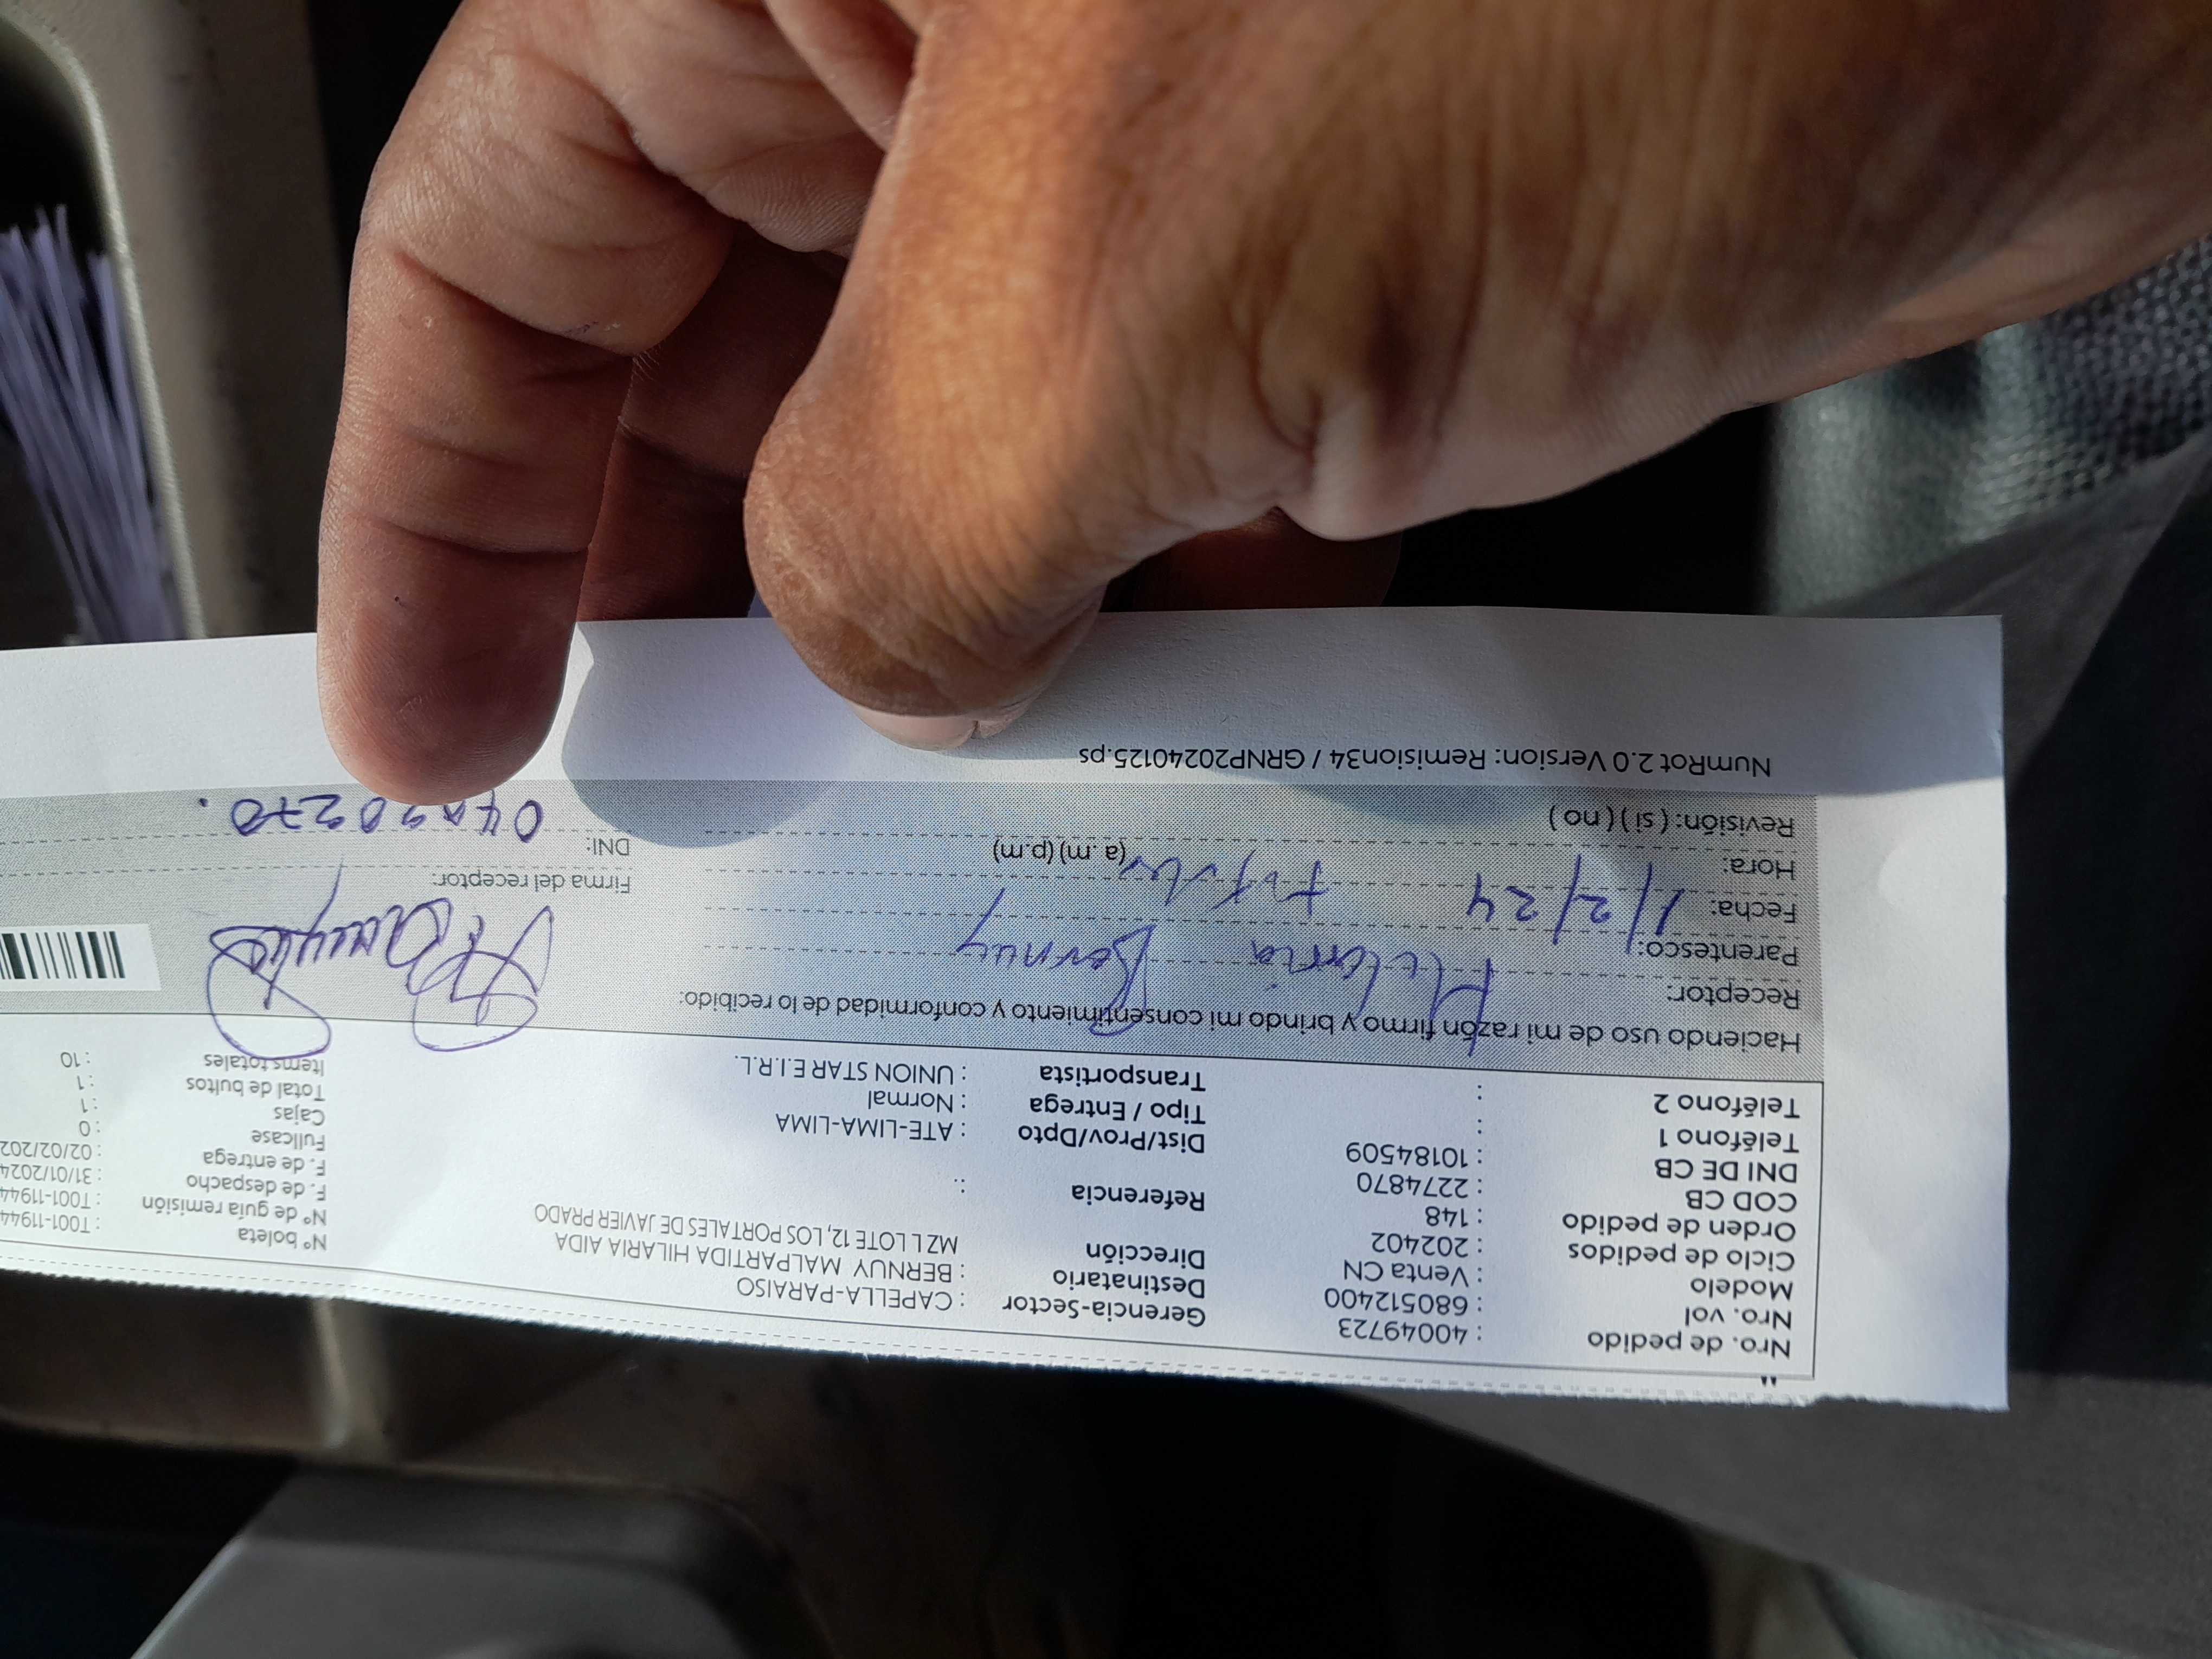 Nro. de pedido : 40049723 Gerencia-Sector : CAPELLA-PARAISO
Nro. vol : 680512400 Destinatario : BERNUY MALPARTIDA HILARIA AIDA Nº boleta : T001-11944
Modelo : Venta CN Dirección MZ L LOTE 12, LOS PORTALES DE JAVIER PRADO Nº de guía remisión : T001-11944
Ciclo de pedidos : 202402 F. de despacho : 31/01/2024
Orden de pedido : 148 Referencia : . F. de entrega : 02/02/202
COD CB : 2274870 Fullcase : 0
DNI DE CB : 10184509 Dist/Prov/Dpto : ATE-LIMA-LIMA Cajas : 1
Teléfono 1 : Tipo / Entrega : Normal Total de bultos : 1
Teléfono 2 : Transportista : UNION STAR E.I.R.L. Items totales : 10
Haciendo uso de mi razón firmo y brindo mi consentimiento y conformidad de lo recibido:
Receptor: Hilaria Bernuy
Parentesco:
Fecha: 1/2/24 Firma del receptor:
Hora: (a .m) (p.m) DNI:
Revisión: ( si ) ( no )
NumRot 2.0 Version: Remision34 / GRNP20240125.ps